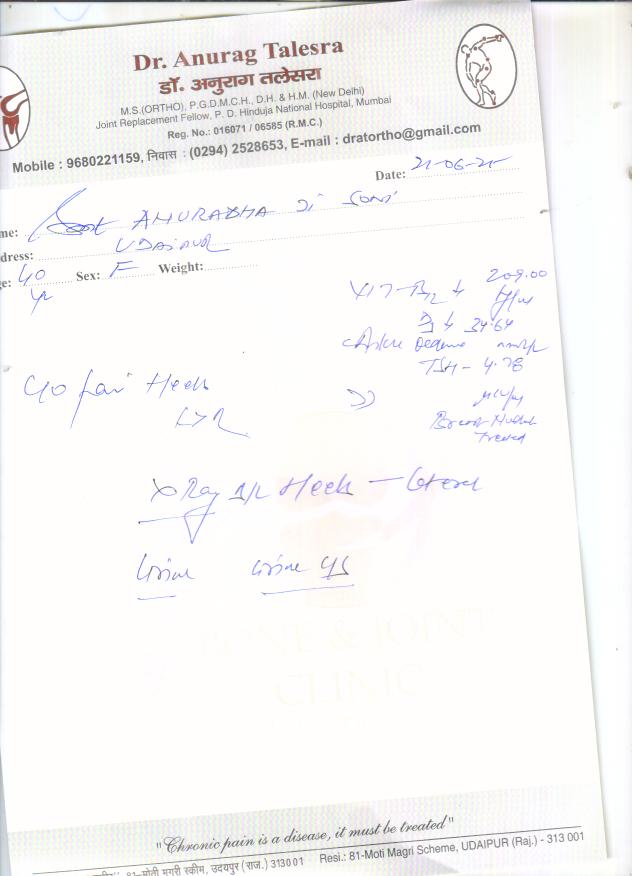 Dr. Anurag Talesra
डॉ. अनुराग तलेसरा
M.S.(ORTHO), P.G.D.M.C.H., D.H. & H.M. (New Delhi)
Joint Replacement Fellow, P. D. Hinduja National Hospital, Mumbai
Reg. No.: 016071 / 06585 (R.M.C.)
Mobile : 9680221159, निवास : (0294) 2528653, E-mail : dratortho@gmail.com
Date: 21-06-25
me: ANURADHA Ji SONI
dress: UDAIPUR
e: 40 yr Sex: F Weight:
VIT-B12 ↓ 209.00
D3 ↓ 34.64
TSH - 4.78
Breast
Treated
40 pain Heels
L>R
X Ray B/L Heels - Lateral
Urine Urine
BONE & JOINT
CLINIC
"Chronic pain is a disease, it must be treated"
81-मोती मगरी स्कीम, उदयपुर (राज.) 313001 Resi.: 81-Moti Magri Scheme, UDAIPUR (Raj.) - 313 001